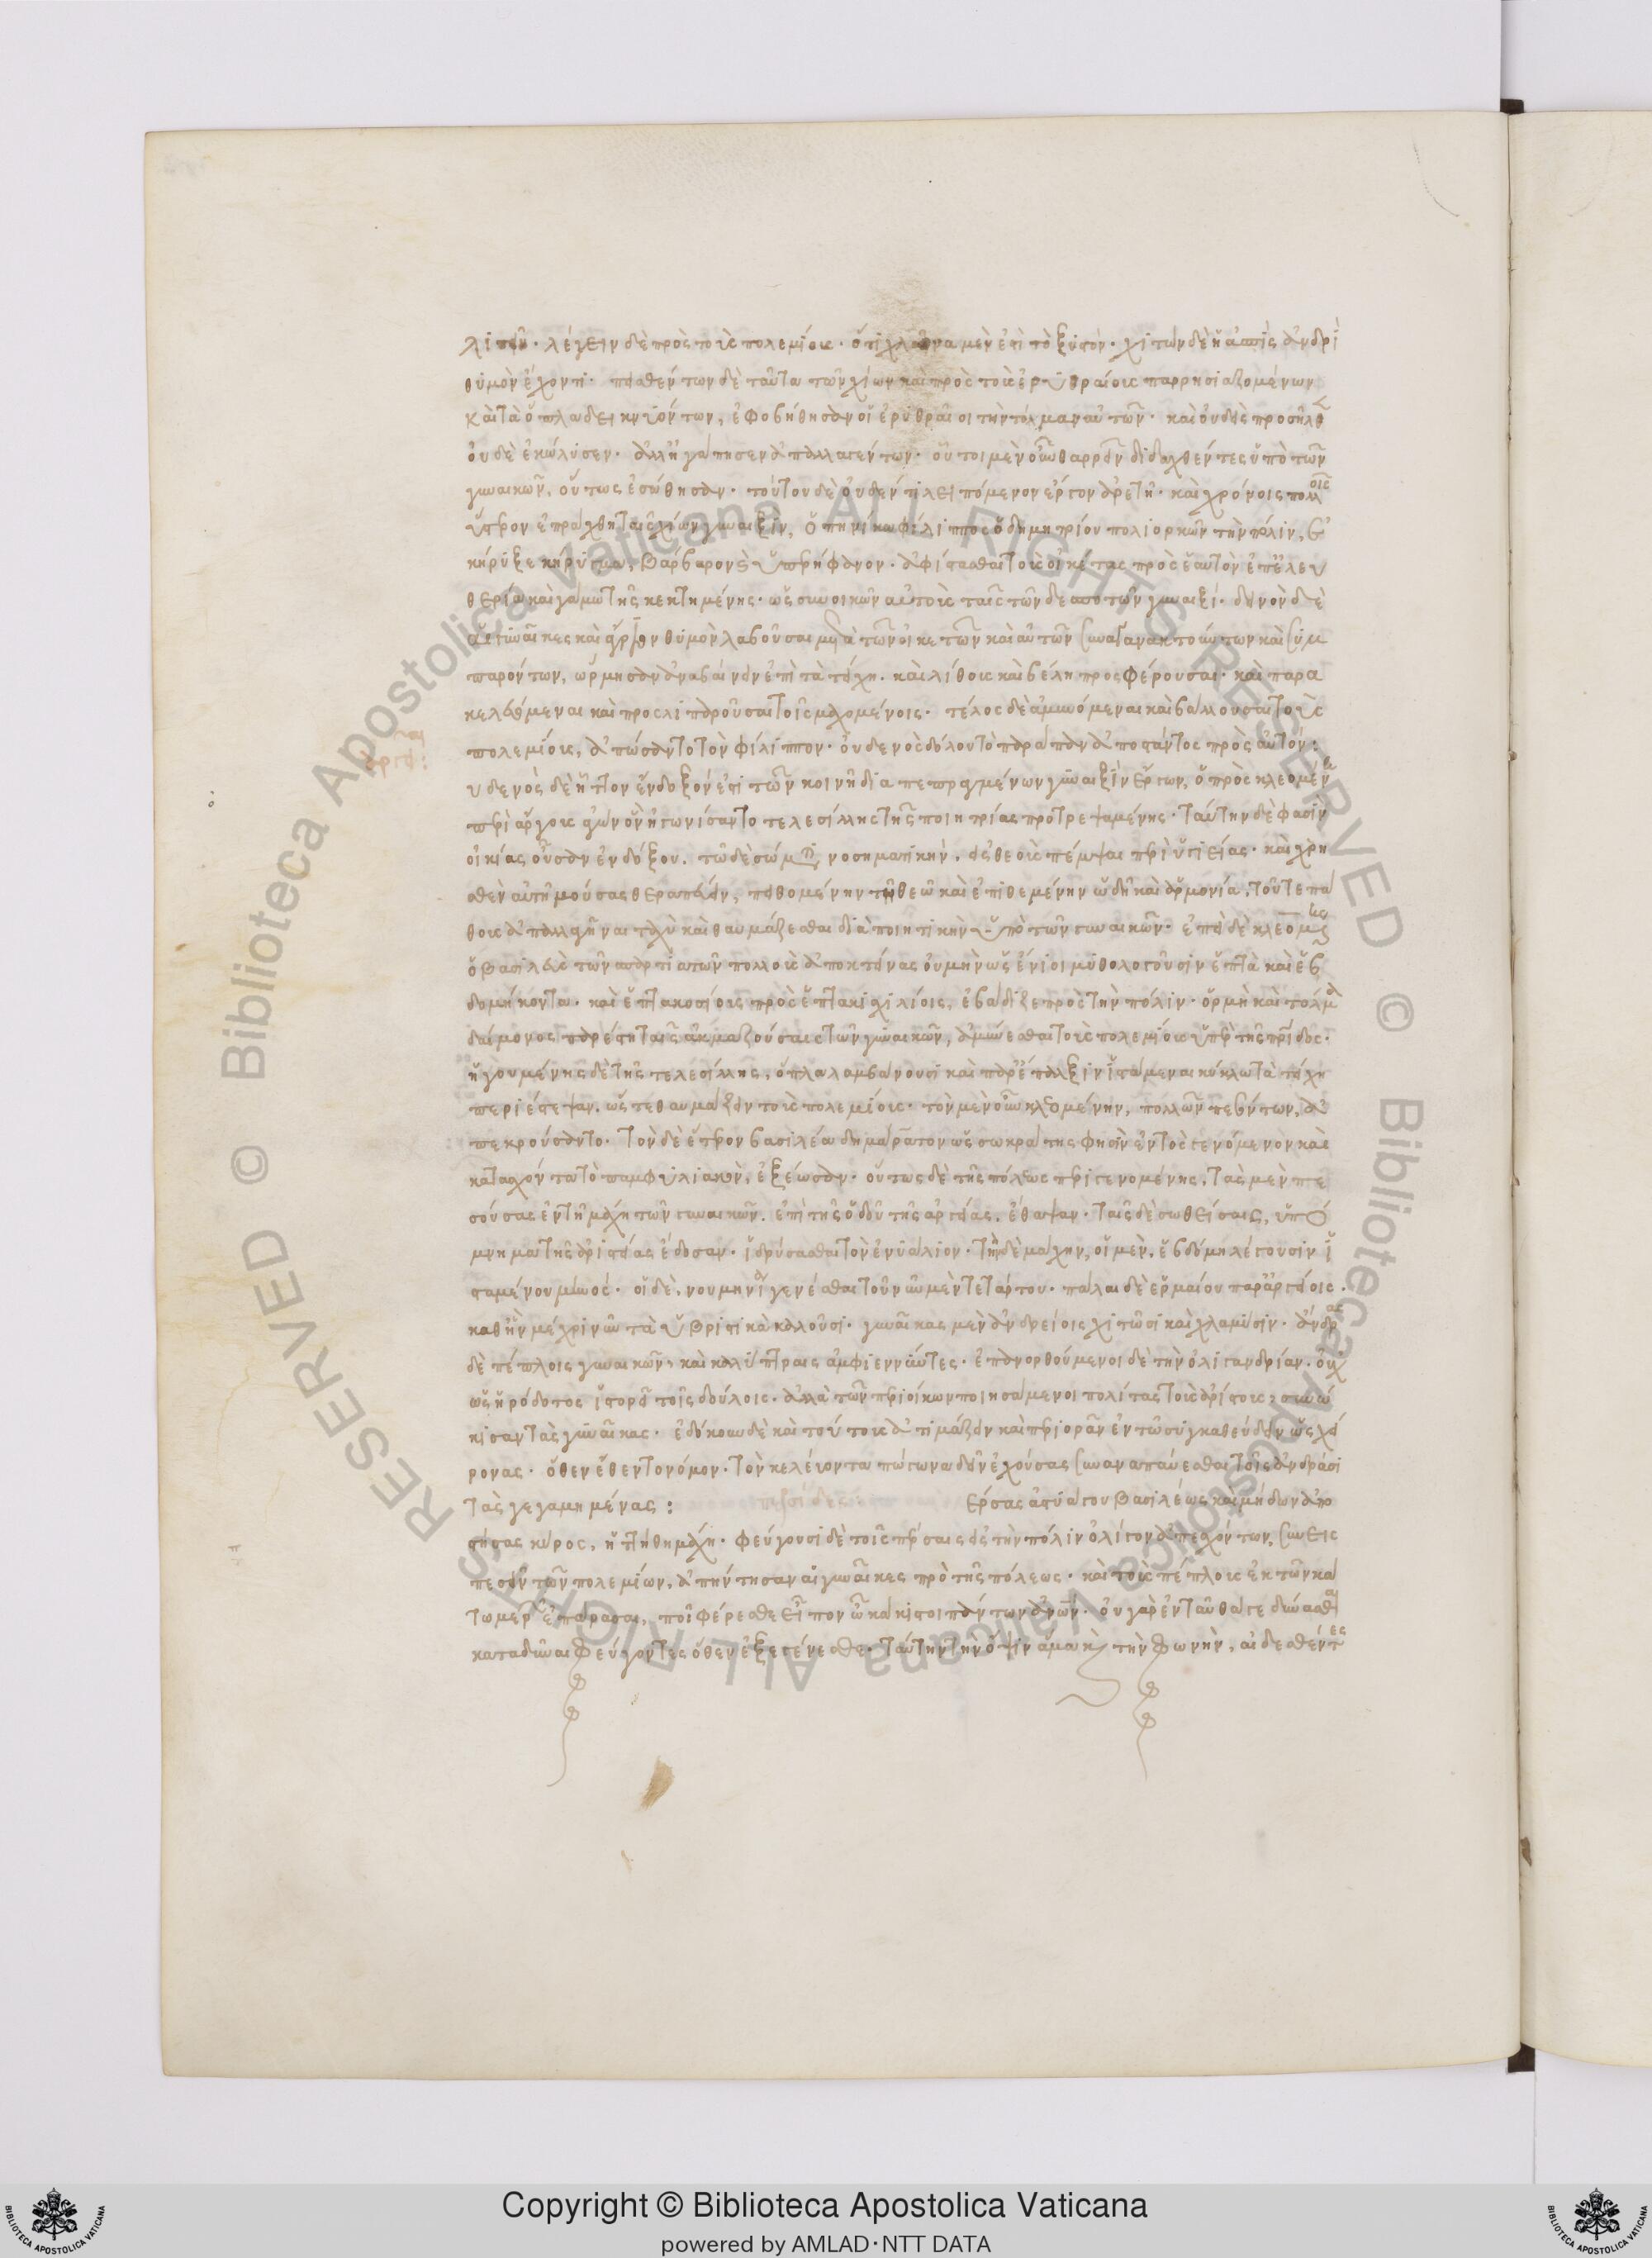 λιπεῖν· λέγειν δὲ πρὸς τοὺς πολεμίους· ὅτι χλαῖνα μὲν ἐστὶ τὸ ξυστόν· χιτὼν δὲ ἡ ἀσπὶς ἀνδρὶ
θυμὸν ἔχοντι· πεισθέντων δὲ ταῦτα τῶν χίων καὶ πρὸς τοὺς ἐρυθραίους παρρησιαζομένων
καὶ τὰ ὅπλα δεικνυόντων, ἐφοβήθησαν οἱ ἐρυθραῖοι τὴν τόλμαν αὐτῶν· καὶ οὐδεὶς προσῆλθεν
οὐδὲ ἐκώλυσεν· ἀλλ' ἠγάπησεν ἀπαλλαγέντων· οὗτοι μὲν οὖν θαρρεῖν διδαχθέντες ὑπὸ τῶν
γυναικῶν, οὕτως ἐσώθησαν· τούτου δὲ οὐδέν τι λειπόμενον ἔργον ἀρετῇ· καὶ χρόνοις πολλοῖς
ὕστερον ἐπράχθη ταῖς χίων γυναιξίν, ὁπηνίκα φίλιππος ὁ δημητρίου πολιορκῶν τὴν πόλιν, ἐ
κήρυξε κήρυγμα, βάρβαρον καὶ ὑπερήφανον· ἀφίστασθαι τοὺς οἰκέτας πρὸς ἑαυτὸν ἐπ' ἐλευ
θερίᾳ καὶ γάμῳ τῆς κεκτημένης· ὡς συνοικῶν αὐτοὺς ταῖς τῶν δεσποτῶν γυναιξί· δεινὸν δὲ
αἱ γυναῖκες καὶ ἄγριον θυμὸν λαβοῦσαι μετὰ τῶν οἰκετῶν καὶ αὐτῶν συναγανακτούντων καὶ συμ
παρόντων, ὥρμησαν ἀναβαίνειν ἐπὶ τὰ τείχη· καὶ λίθους καὶ βέλη προσφέρουσαι· καὶ παρα
κελευόμεναι καὶ προσλιπαροῦσαι τοῖς μαχομένοις· τέλος δὲ ἀμυνόμεναι καὶ βάλλουσαι τοὺς
πολεμίους, ἀπώσαντο τὸν φίλιππον· οὐδενὸς δούλου τὸ παράπαν ἀποστάντος πρὸς αὐτόν:
υδενὸς δὲ ἧττον ἔνδοξόν ἐστι τῶν κοινῇ διαπεπραγμένων γυναιξὶν ἔργων, ὁ πρὸς κλεομένη
περὶ ἄργους ἀγὼν ὃν ἠγωνίσαντο τελεσίλλης τῆς ποιητρίας προτρεψαμένης· ταύτην δὲ φασὶν
οἰκίας οὖσαν ἐνδόξου. τῷ δὲ σώματι νοσηματικὴν. εἰς θεοὺς πέμψαι περὶ ὑγιείας· καὶ χρη
σθὲν αὐτῇ μούσας θεραπεύειν, πειθομένην τῷ θεῷ καὶ ἐπιθεμένην ᾠδῇ καὶ ἁρμονίᾳ, τοῦ τε πά
θους ἀπαλλαγῆναι ταχὺ καὶ θαυμάζεσθαι διὰ ποιητικὴν ὑπὸ τῶν γυναικῶν· ἐπεὶ δὲ κλεομένης
ὁ βασιλεὺς τῶν σπαρτιατῶν πολλοὺς ἀποκτείνας οὐ μὴν ὡς ἔνιοι μυθολογοῦσιν ἑπτὰ καὶ ἑβ
δομήκοντα· καὶ ἑπτακοσίους πρὸς ἑπτακισχιλίοις, ἐβάδιζε πρὸς τὴν πόλιν· ὁρμὴ καὶ τόλμα
δαίμονος παρέστη ταῖς ἀκμαζούσαις τῶν γυναικῶν, ἀμύνεσθαι τοὺς πολεμίους ὑπὲρ τῆς πατρίδος·
ἡγουμένης δὲ τῆς τελεσίλλης, ὅπλα λαμβάνουσι καὶ παρ' ἔπαλξιν ἱστάμεναι κύκλῳ τὰ τείχη
περιέστεψαν. ὥστε θαυμάζειν τοὺς πολεμίους· τὸν μὲν οὖν κλεομένην, πολλῶν πεσόντων, ἀ
πεκρούσαντο. τὸν δὲ ἕτερον βασιλέα δημάρατον ὡς σωκράτης φησὶν ἐντὸς γενόμενον καὶ
κατασχόντα τὸ παμφυλιακόν, ἐξέωσαν· οὕτως δὲ τῆς πόλεως περιγενομένης, τὰς μὲν πε
σούσας ἐν τῇ μάχῃ τῶν γυναικῶν. ἐπὶ τῆς ὁδοῦ τῆς ἀργείας. ἔθαψαν· ταῖς δὲ σωθείσαις, ὑπό
μνημα τῆς ἀριστείας ἔδοσαν· ἱδρύσασθαι τὸν ἐνυάλιον· τὴν δὲ μάχην, οἱ μὲν, ἑβδόμῃ λέγουσιν ἱ
σταμένου μηνός· οἱ δὲ, νουμηνίᾳ γενέσθαι τοῦ νῦν μὲν τετάρτου· πάλαι δὲ ἑρμαίου παρ' ἀργείοις·
καθ' ἣν μέχρι νῦν τὰ ὑβριστικὰ καλοῦσι· γυναῖκας μὲν ἀνδρείοις χιτῶσι καὶ χλαμύσιν· ἄνδρας
δὲ πέπλοις γυναικῶν, καὶ καλύπτραις ἀμφιεννύντες· ἐπανορθούμενοι δὲ τὴν ὀλιγανδρίαν· οὐχ
ὡς ἡρόδοτος ἱστορεῖ τοῖς δούλοις· ἀλλὰ τῶν περιοίκων ποιησάμενοι πολίτας τοὺς ἀρίστους, συνῴ
κισαν τὰς γυναῖκας· ἐδόκουν δὲ καὶ τούτους ἀτιμάζειν καὶ περιορᾶν ἐν τῷ συγκαθεύδειν ὡς χεί
ρονας· ὅθεν ἔθεντο νόμον· τὸν κελεύοντα πώγωνα δεῖν ἐχούσας συναναπαύεσθαι τοῖς ἀνδράσι
τὰς γεγαμημένας: περσίδες: έρσας ἀστυάγου βασιλέως καὶ μήδων ἀπο
στήσας κῦρος, ἡττήθη μάχῃ· φεύγουσι δὲ τοῖς πέρσαις εἰς τὴν πόλιν ὀλίγον ἀπεχόντων, συνεισ
πεσεῖν τῶν πολεμίων, ἀπήντησαν αἱ γυναῖκες πρὸ τῆς πόλεως· καὶ τοὺς πέπλους ἐκ τῶν κά
τω μερῶν ἐπάρασαι, ποῖ φέρεσθε εἶπον ὦ κάκιστοι πάντων ἀνθρώπων· οὐ γὰρ ἐνταῦθά γε δύνασθε
καταδῦναι φεύγοντες ὅθεν ἐξεγένεσθε· ταύτην τὴν ὄψιν ἅμα καὶ τὴν φωνὴν, αἰδεσθέντες